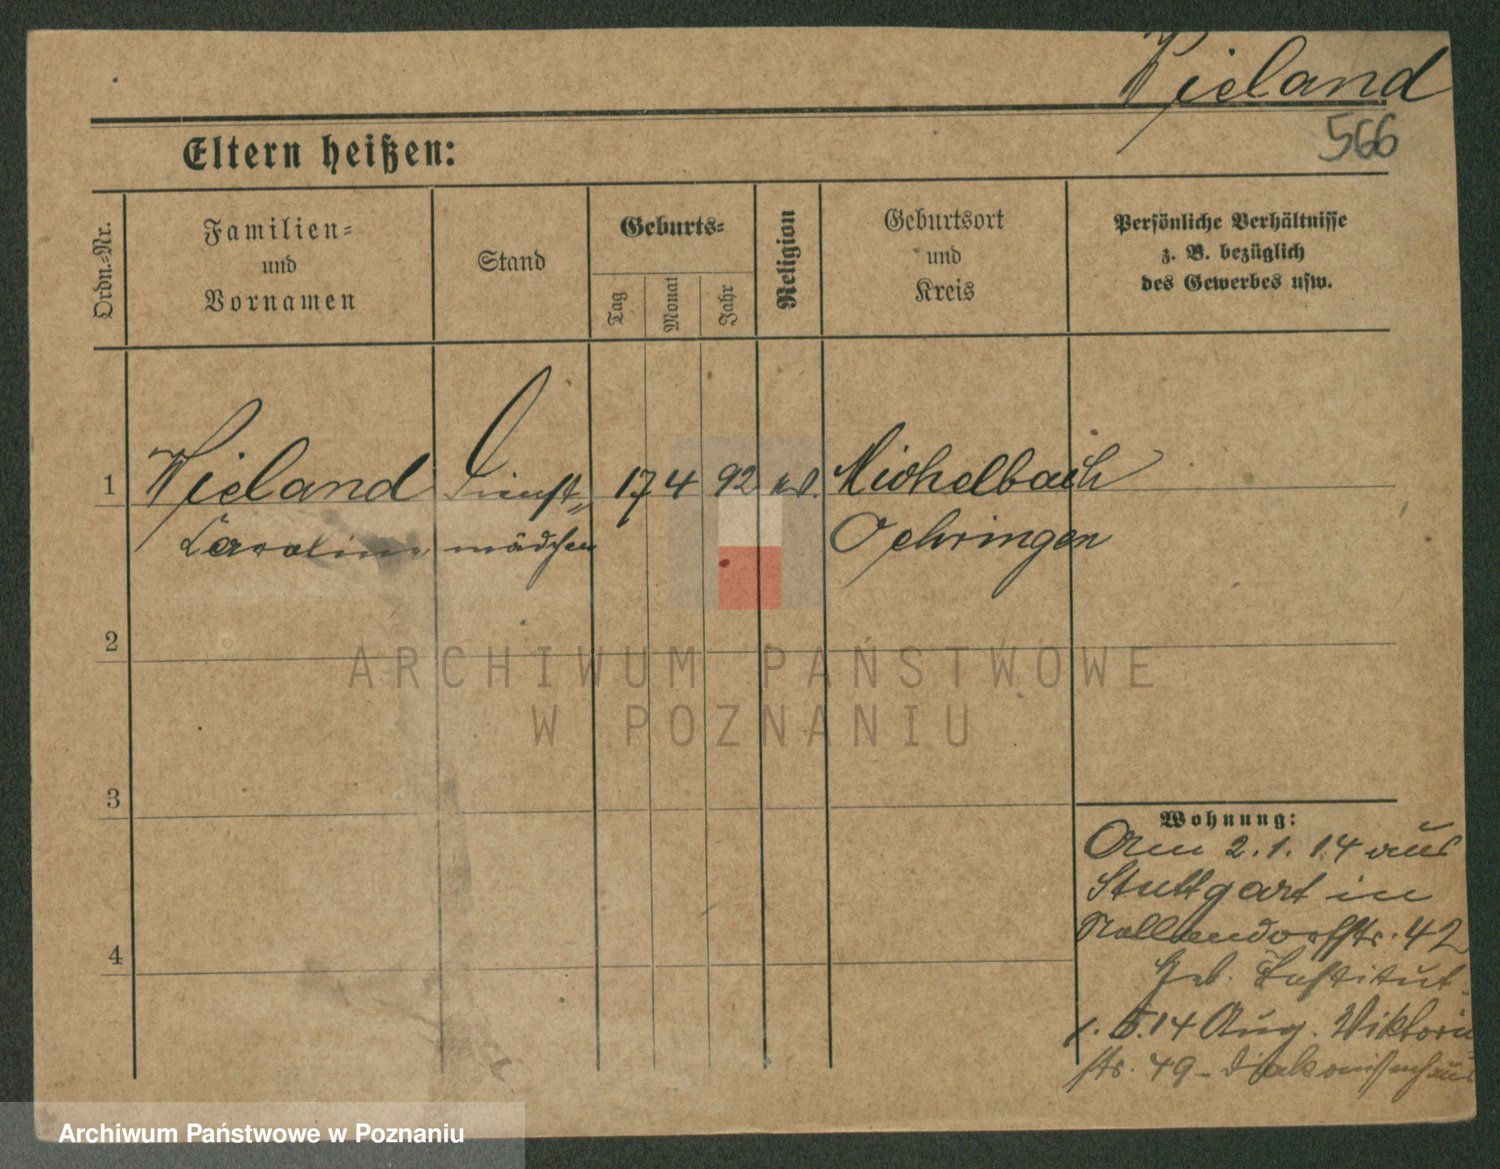 Wieland
566
Eltern heißen:
Ordn.-Nr.
Familien-
und
Vornamen
Stand
Geburts-
Tag
Monat
Jahr
Religion
Geburtsort
und
Kreis
Persönliche Verhältnisse
z. B. bezüglich
des Gewerbes usw.
1 Wieland Dienst- 17 4 92 ev. Michelbach
Caroline mädchen Oehringen
2
3
4
Wohnung:
Am 2.1.14 aus
Stuttgart in
Nollendorfstr. 42
Geb. Institut.
1. 5.14 Aug. Viktoria
str. 49 - Diakonissenhaus
ARCHIWUM PAŃSTWOWE
W POZNANIU
Archiwum Państwowe w Poznaniu